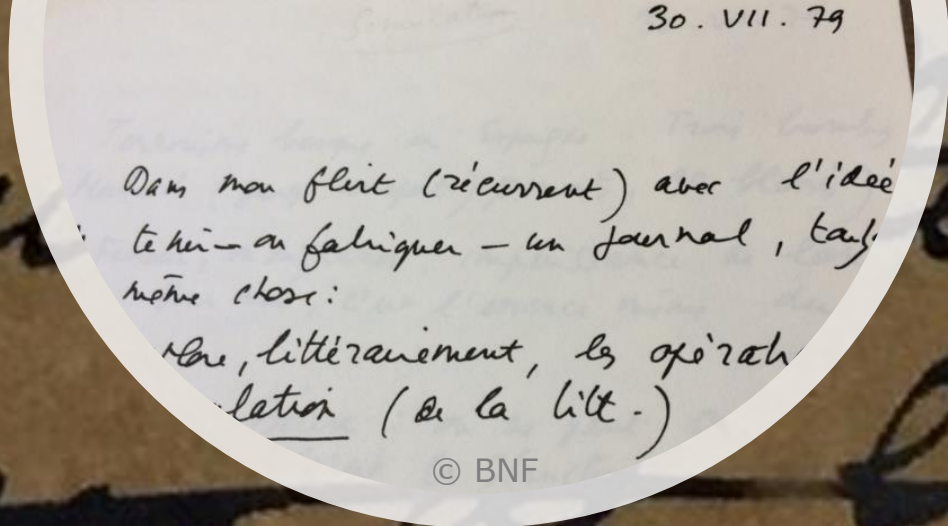 30. VII. 79
Dans mon flirt (récurrent) avec l'idée
tenir – ou fabriquer – un journal,
même chose:
littérairement, les
lation (de la litt.)
© BNF